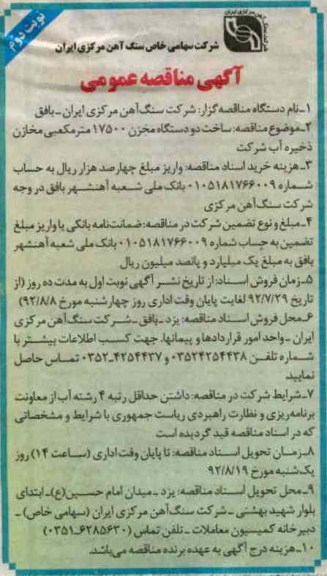 نوبت دوم
شرکت سنگ آهن مرکزی ایران
شرکت سهامی خاص سنگ آهن مرکزی ایران
آگهی مناقصه عمومی
۱-نام دستگاه مناقصه گزار: شرکت سنگ آهن مرکزی ایران-بافق
۲-موضوع مناقصه: ساخت دو دستگاه مخزن ۱۷۵۰۰ مترمکعبی مخازن
ذخیره آب شرکت
۳-هزینه خرید اسناد مناقصه: واریز مبلغ چهارصد هزار ریال به حساب
شماره ۰۱۰۵۱۸۱۷۶۶۰۰۹ بانک ملی شعبه آهنشهر بافق در وجه
شرکت سنگ آهن مرکزی
۴-مبلغ و نوع تضمین شرکت در مناقصه: ضمانت‌نامه بانکی یا واریز مبلغ
تضمین به حساب شماره ۰۱۰۵۱۸۱۷۶۶۰۰۹ بانک ملی شعبه آهنشهر
بافق به مبلغ یک میلیارد و پانصد میلیون ریال
۵-زمان فروش اسناد: از تاریخ نشر آگهی نوبت اول به مدت ده روز (از
تاریخ ۹۲/۷/۲۹ لغایت پایان وقت اداری روز چهارشنبه مورخ ۹۲/۸/۸)
۶-محل فروش اسناد مناقصه: یزد-بافق-شرکت سنگ آهن مرکزی
ایران-واحد امور قراردادها و پیمانها. جهت کسب اطلاعات بیشتر با
شماره تلفن ۰۳۵۲۴۲۵۴۴۳۸ و ۴۲۵۴۴۳۷-۰۳۵۲ تماس حاصل
نمایید
۷-شرایط شرکت در مناقصه: داشتن حداقل رتبه ۴ رشته آب از معاونت
برنامه‌ریزی و نظارت راهبردی ریاست جمهوری با شرایط و مشخصاتی
که در اسناد مناقصه قید گردیده است
۸-زمان تحویل اسناد مناقصه: تا پایان وقت اداری (ساعت ۱۴) روز
یک‌شنبه مورخ ۹۲/۸/۱۹
۹-محل تحویل اسناد مناقصه: یزد-میدان امام حسین(ع)-ابتدای
بلوار شهید بهشتی-شرکت سنگ آهن مرکزی ایران (سهامی خاص)-
دبیرخانه کمیسیون معاملات-تلفن تماس (۶۲۸۵۶۳۰-۰۳۵۱)
۱۰-هزینه درج آگهی به عهده برنده مناقصه می‌باشد.